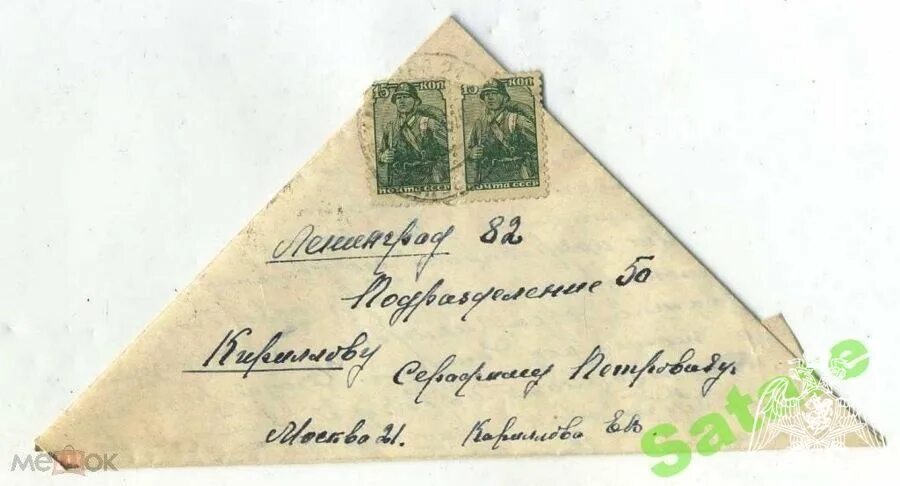 15 КОП 15 КОП
ПОЧТА СССР ПОЧТА СССР
Ленинград 82
Подразделение 50
Кириллову
Серафиму Петровичу.
Москва 21. Кириллова Е.В.
мешок
Sat e